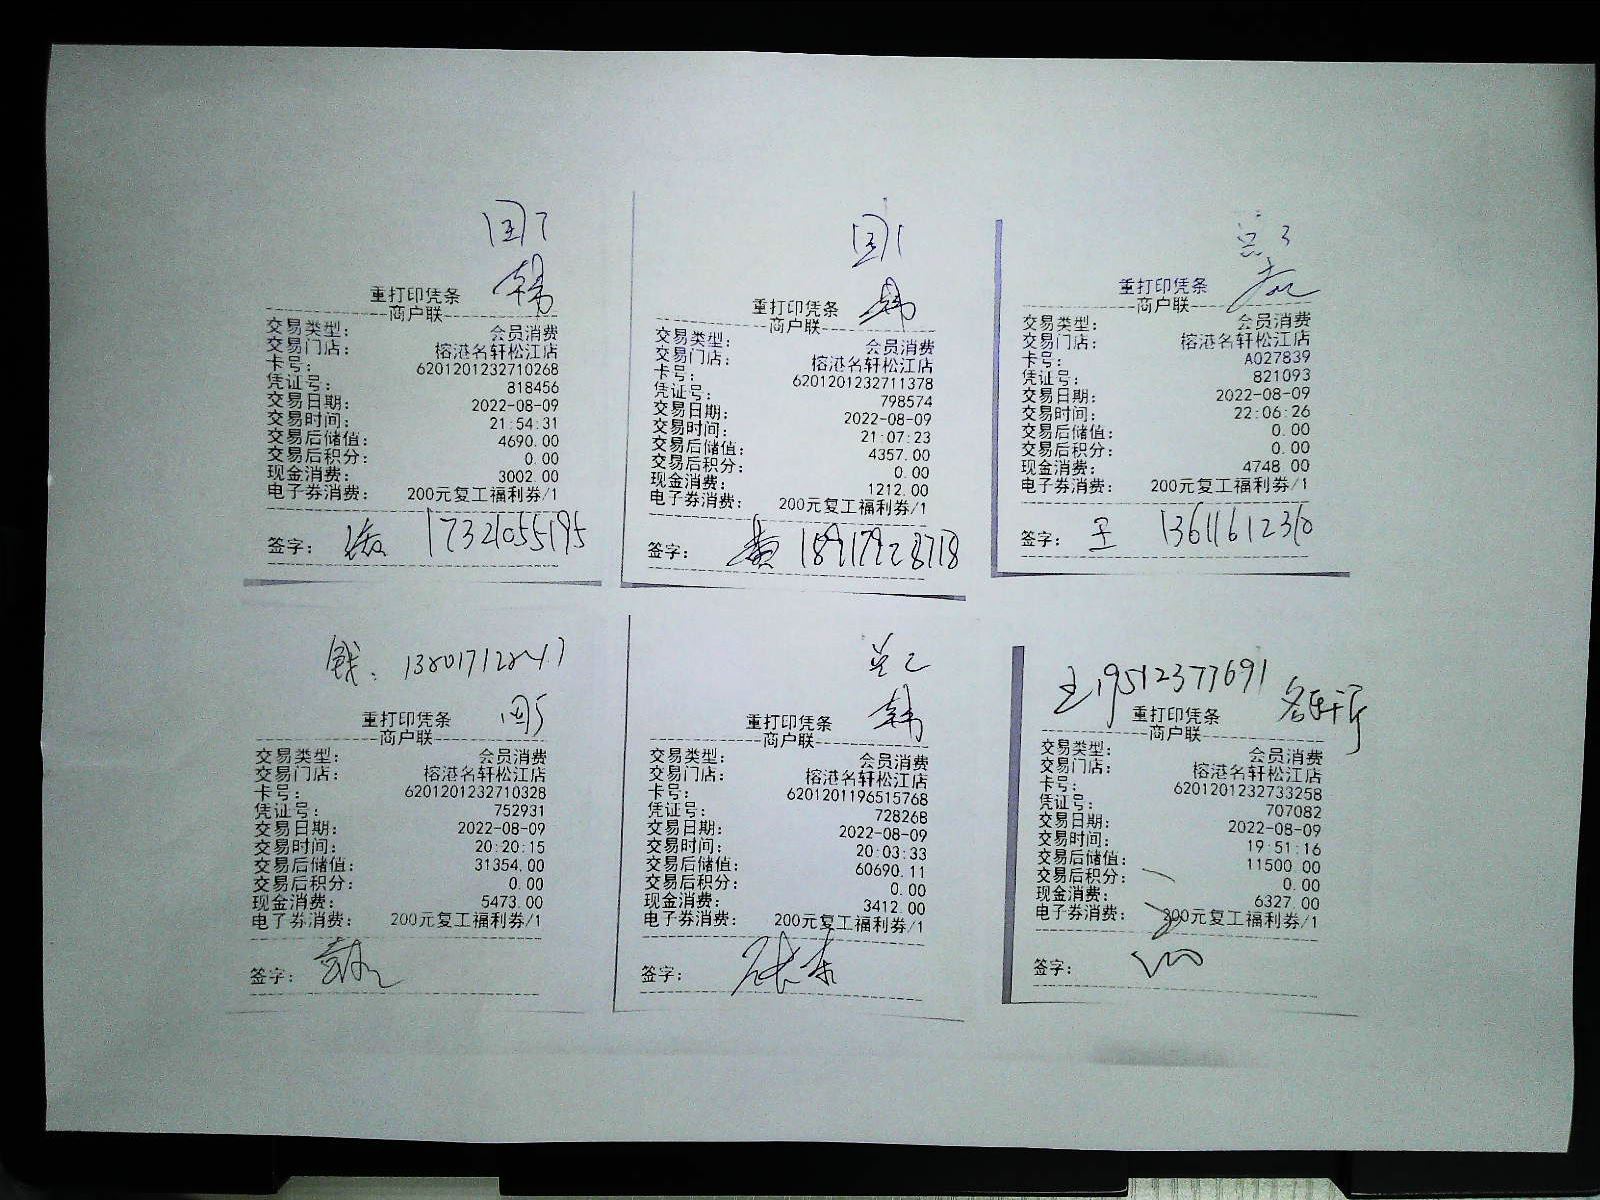 国7
韩
重打印凭条
商户联
交易类型: 会员消费
交易门店: 榕港名轩松江店
卡号: 6201201232710268
凭证号: 818456
交易日期: 2022-08-09
交易时间: 21:54:31
交易后储值: 4690.00
交易后积分: 0.00
现金消费: 3002.00
电子券消费: 200元复工福利券/1
签字: 17321055195
国1
韩
重打印凭条
商户联
交易类型: 会员消费
交易门店: 榕港名轩松江店
卡号: 6201201232711378
凭证号: 798574
交易日期: 2022-08-09
交易时间: 21:07:23
交易后储值: 4357.00
交易后积分: 0.00
现金消费: 1212.00
电子券消费: 200元复工福利券/1
签字: 黄 18917928718
重打印凭条
商户联
交易类型: 会员消费
交易门店: 榕港名轩松江店
卡号: A027839
凭证号: 821093
交易日期: 2022-08-09
交易时间: 22:06:26
交易后储值: 0.00
交易后积分: 0.00
现金消费: 4748.00
电子券消费: 200元复工福利券/1
签字: 王 13611612310
钱.
国5
重打印凭条
商户联
交易类型: 会员消费
交易门店: 榕港名轩松江店
卡号: 6201201232710328
凭证号: 752931
交易日期: 2022-08-09
交易时间: 20:20:15
交易后储值: 31354.00
交易后积分: 0.00
现金消费: 5473.00
电子券消费: 200元复工福利券/1
签字:
韩
重打印凭条
商户联
交易类型: 会员消费
交易门店: 榕港名轩松江店
卡号: 6201201196515768
凭证号: 728268
交易日期: 2022-08-09
交易时间: 20:03:33
交易后储值: 60690.11
交易后积分: 0.00
现金消费: 3412.00
电子券消费: 200元复工福利券/1
签字:
王 19512377691
名轩厅
重打印凭条
商户联
交易类型: 会员消费
交易门店: 榕港名轩松江店
卡号: 6201201232733258
凭证号: 707082
交易日期: 2022-08-09
交易时间: 19:51:16
交易后储值: 11500.00
交易后积分: 0.00
现金消费: 6327.00
电子券消费: 200元复工福利券/1
签字: